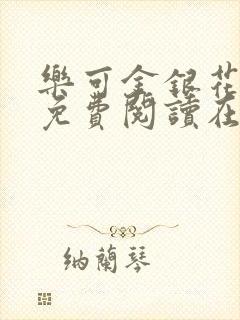 樂可金銀花
免費閱讀在
納蘭琴